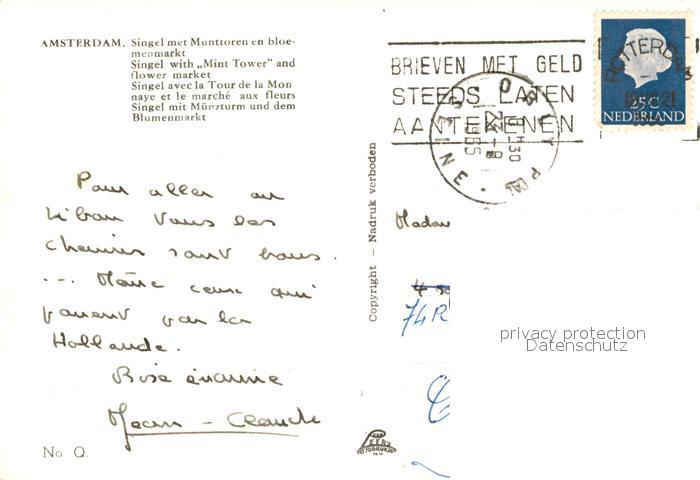 AMSTERDAM. Singel met Munttoren en bloe-
menmarkt
Singel with „Mint Tower" and
flower market
Singel avec la Tour de la Mon
naye et le marché aux fleurs
Singel mit Münzturm und dem
Blumenmarkt
BRIEVEN MET GELD
STEEDS LATEN
AANTEKENEN
ROTTERDAM
25C
NEDERLAND
ORLY
SEINE
8H30
23-8
1965
Pour aller au
Liban tous les
chemins sont bons.
... Même ceux qui
passent par la
Hollande.
Bise
Jean-Claude
No Q.
Copyright - Nadruk verboden
Madam
74 R
privacy protection
Datenschutz